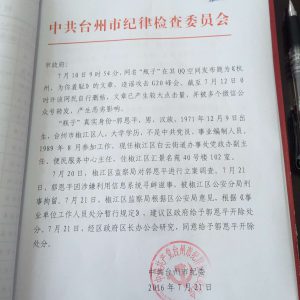 中共台州市纪律检查委员会
市政府：
7月10日9时54分，网名“瓶子”在其QQ空间发布题为《杭
州，为你羞耻》的文章，造谣攻击G20峰会。截至7月12日0
时许该网民自行删帖，文章已产生较大点击量，并被多个微信公
众号转发，产生恶劣影响。
“瓶子”真实身份：郭恩平，男，汉族，1971年12月9日出
生，台州市椒江区人，大学学历，不是中共党员，事业编制人员，
1989年8月参加工作，现任椒江区白云街道办事处党政办副主
任、便民服务中心主任。住椒江区汇景名苑40号楼102室。
7月20日，椒江区监察局对郭恩平进行立案调查。7月21日，
郭恩平因涉嫌利用信息系统寻衅滋事，被椒江区公安分局刑
事拘留。7月21日，椒江区监察局根据公安局意见，根据《事
业单位工作人员处分暂行规定》，建议区政府给予郭恩平开除处
分。7月21日，经区政府区长办公会研究，同意给予郭恩平开除
处分。
中共台州市纪委
2016年7月21日